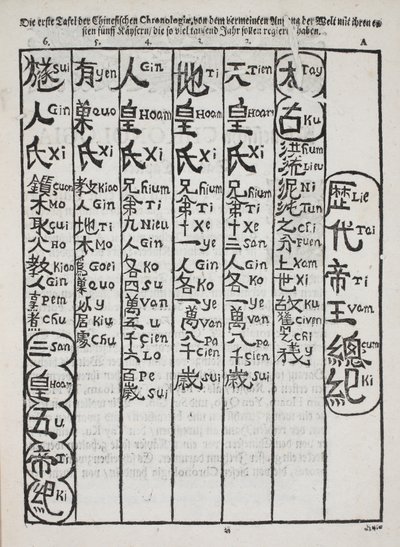 Die erſte Tafel der Chineſiſchen Chronologiæ, von dem vermeinten Anfang der Welt mit ihren er-
ſten fünff Käyſern, die ſo viel tauſend Jahr ſollen regiert haben.
6. 5. 4. 3. 2. A
歷代帝王總紀
Lie Tai Ti Vam cum Ki
太古
Tay Ku
洪流泥沌之分上世故之
hium Lieu Ni Tun chi Fuen Xam Xi Ku civen chi y
天皇氏兄第十三人各一萬八千歲
Tien Hoam Xi hium Ti Xe San Gin Ko ye Van Pa çien Sui
地皇氏兄第十一人各一萬八千歲
Ti Hoam Xi hium Ti Xe ye Gin Ko ye Van Pa Cien Sui
人皇氏兄第九人各四萬五千六百歲
Gin Hoam Xi hium Ti Nieu Gin Ko Su Van u Çien Lo Pe Sui
有菓氏教人地木為巢以居處
yen quo Xi Kiao Gin Ti Mo Goei quo y Kiu chu
燧人氏鑽木取火教人烹煮
Sui Gin Xi cuon Mo cui Ho Kiao Gin pem chu
三皇五帝紀
San Hoam U Ti Ki